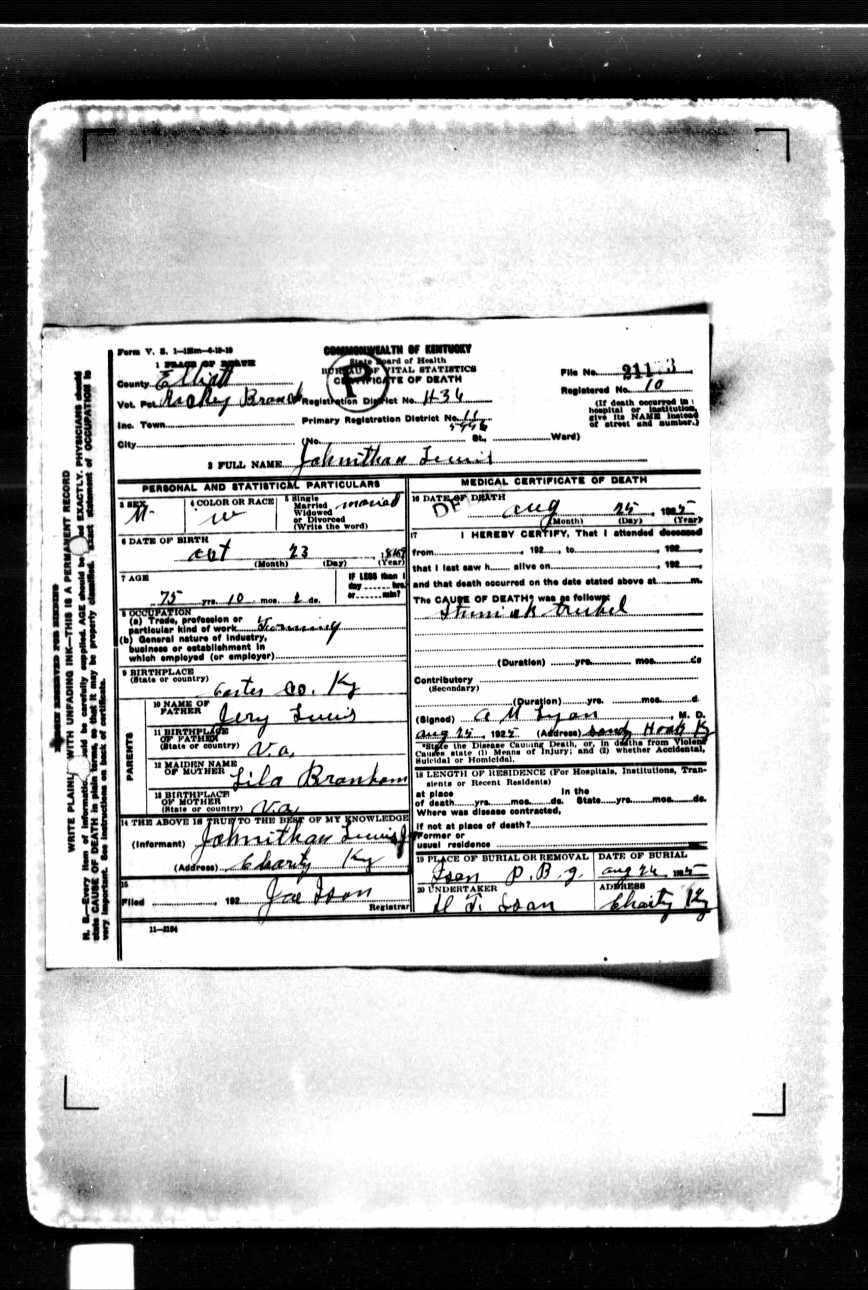 Form V. S. 1-
COMMONWEALTH OF KENTUCKY
State Board of Health
BUREAU OF VITAL STATISTICS
CERTIFICATE OF DEATH
P
1 PLACE OF DEATH
County Elliott
Vot. Pct. Branch
Inc. Town
City
Registration District No. 436
Primary Registration District No.
(No. St., Ward)
File No.
Registered No. 10
(If death occurred in
hospital or institution,
give its NAME instead
of street and number.)
2 FULL NAME Johnithan Lewis
PERSONAL AND STATISTICAL PARTICULARS
3 SEX M
4 COLOR OR RACE w
5 Single
Married
Widowed
or Divorced
(Write the word)
married
6 DATE OF BIRTH
oct 23
(Month) (Day) (Year)
7 AGE
75 yrs. 10 mos. 2 ds.
IF LESS than 1
day hrs.
or min?
8 OCCUPATION
(a) Trade, profession or
particular kind of work Farming
(b) General nature of industry,
business or establishment in
which employed (or employer)
9 BIRTHPLACE
(State or country) Carter Co. Ky
PARENTS
10 NAME OF
FATHER Jery Lewis
11 BIRTHPLACE
OF FATHER
(State or country) Va.
12 MAIDEN NAME
OF MOTHER Lila Branham
13 BIRTHPLACE
OF MOTHER
(State or country) Va
14 THE ABOVE IS TRUE TO THE BEST OF MY KNOWLEDGE
(Informant) Johnithan Lewis Jr
(Address) Charity Ky
15
Filed , 192 Joe Ison
Registrar
11-3184
MEDICAL CERTIFICATE OF DEATH
16 DATE OF DEATH
aug 25, 1925
(Month) (Day) (Year)
17 I HEREBY CERTIFY, That I attended deceased
from , 192 , to , 192 ,
that I last saw h alive on , 192 ,
and that death occurred on the date stated above at m.
The CAUSE OF DEATH* was as follows:
(Duration) yrs. mos. ds
Contributory
(Secondary)
(Duration) yrs. mos. d
(Signed) A M Lyon , M. D.
aug 25, 1925 (Address) Sandy Hook K
*State the Disease Causing Death, or, in deaths from Violent
Causes state (1) Means of Injury; and (2) whether Accidental,
Suicidal or Homicidal.
18 LENGTH OF RESIDENCE (For Hospitals, Institutions, Tran-
sients or Recent Residents)
at place
of death yrs. mos. ds.
In the
State yrs. mos. ds.
Where was disease contracted,
if not at place of death?
Former or
usual residence
19 PLACE OF BURIAL OR REMOVAL
Ison P. B. g.
DATE OF BURIAL
aug 26, 1925
20 UNDERTAKER
H. F. Ison
ADDRESS
Charity Ky
WRITE PLAINLY WITH UNFADING INK—THIS IS A PERMANENT RECORD